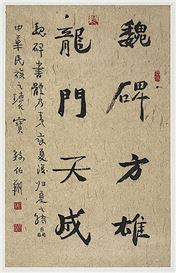 魏碑方雄
龍門天成
魏碑書體乃
中華民族之瑰寶 孫伯翔